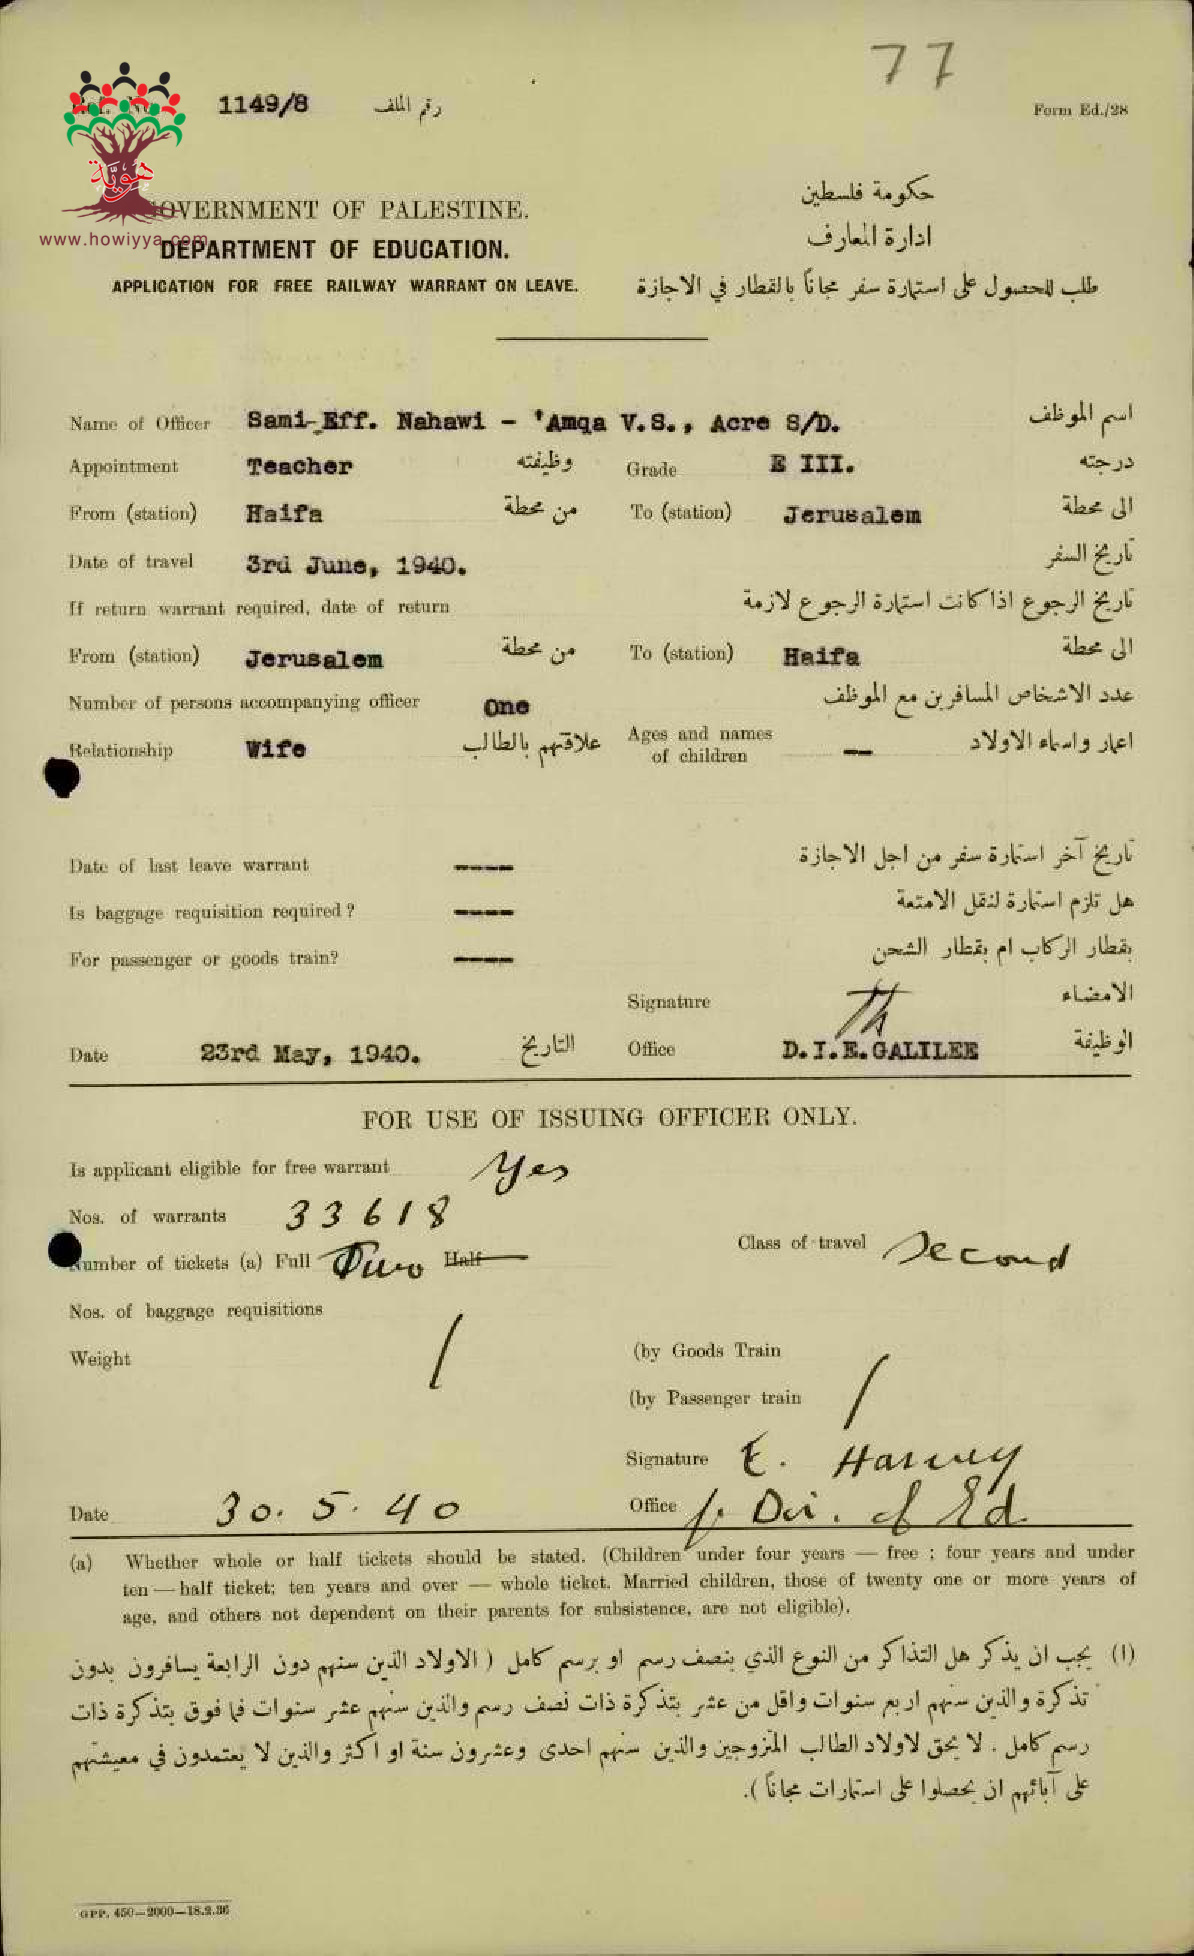 77
Ref. No. 1149/8 رقم الملف
Form Ed./28
هوية
www.howiyya.com
GOVERNMENT OF PALESTINE. حكومة فلسطين
DEPARTMENT OF EDUCATION. ادارة المعارف
APPLICATION FOR FREE RAILWAY WARRANT ON LEAVE. طلب للحصول على استمارة سفر مجاناً بالقطار في الاجازة
Name of Officer Sami Eff. Nahawi - 'Amqa V.S., Acre S/D. اسم الموظف
Appointment Teacher وظيفته Grade E III. درجته
From (station) Haifa من محطة To (station) Jerusalem الى محطة
Date of travel 3rd June, 1940. تاريخ السفر
If return warrant required, date of return تاريخ الرجوع اذا كانت استمارة الرجوع لازمة
From (station) Jerusalem من محطة To (station) Haifa الى محطة
Number of persons accompanying officer One عدد الاشخاص المسافرين مع الموظف
Relationship Wife علاقتهم بالطالب Ages and names of children — اعمار واسماء الاولاد
Date of last leave warrant ---- تاريخ آخر استمارة سفر من اجل الاجازة
Is baggage requisition required? ---- هل تلزم استمارة لنقل الامتعة
For passenger or goods train? ---- بقطار الركاب ام بقطار الشحن
Signature الامضاء
Date 23rd May, 1940. التاريخ Office D.I.E.GALILEE الوظيفة
FOR USE OF ISSUING OFFICER ONLY.
Is applicant eligible for free warrant Yes
Nos. of warrants 33618
Number of tickets (a) Full Two Half Class of travel Second
Nos. of baggage requisitions
Weight (by Goods Train
(by Passenger train
Signature E. Harvey
Date 30.5.40 Office f. Dir. of Ed
(a) Whether whole or half tickets should be stated. (Children under four years — free ; four years and under
ten — half ticket; ten years and over — whole ticket. Married children, those of twenty one or more years of
age, and others not dependent on their parents for subsistence, are not eligible).
(ا) يجب ان يذكر هل التذاكر من النوع الذي بنصف رسم او برسم كامل ( الاولاد الذين سنهم دون الرابعة يسافرون بدون
تذكرة والذين سنهم اربع سنوات واقل من عشر بتذكرة ذات نصف رسم والذين سنهم عشر سنوات فما فوق بتذكرة ذات
رسم كامل . لا يحق لاولاد الطالب المتزوجين والذين سنهم احدى وعشرون سنة او اكثر والذين لا يعتمدون في معيشتهم
على آبائهم ان يحصلوا على استمارات مجاناً ).
GPP. 450—2000—18.2.36